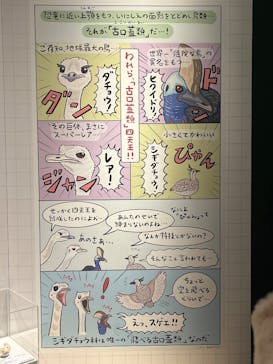 恐竜に近い上顎をもつ、いにしえの面影をとどめし鳥類…
それが「古口蓋類」だ…!
ご存知、地球最大の鳥
ダチョウ!
ダーン
世界一「危険な鳥」の
異名をもつ
ヒクイドリ!
ドン
われら、「古口蓋類」四天王!!
その巨体、まさに
スーパーレア…
レアー!
ジャン
小さくてかわいい
シギダチョウ!
ぴゃん
せっかく四天王を
結成したのによォ…
あんたのせいで
締まらないのよね
なによ
「ぴゃん」って
あのさぁ…
なんか特技とかないの?
そんなこと言われても…
ちょっと
空を飛べる
くらいで…
えっ、スゲェ!!
シギダチョウ科は唯一の「飛べる古口蓋類」なのだ